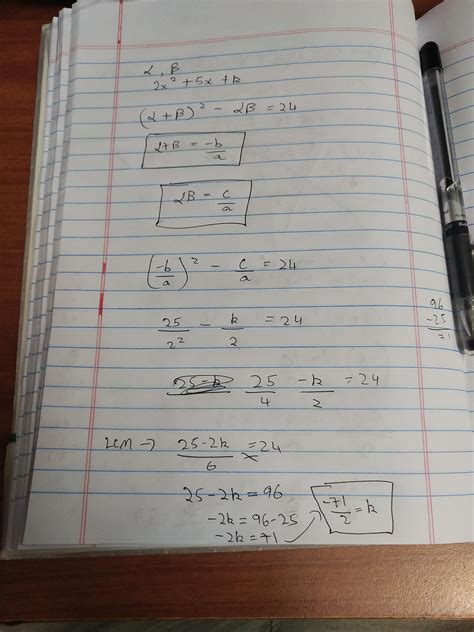 α, β
2x² + 5x + k
(α + β)² - αβ = 24
α+β = -b/a
αβ = c/a
(-b/a)² - c/a = 24
25/2² - k/2 = 24
96
-25
71
25/4 - k/2 = 24
LCM → 25-2k/6 = 24
25 - 2k = 96
-2k = 96 - 25
-2k = 71
-71/2 = k